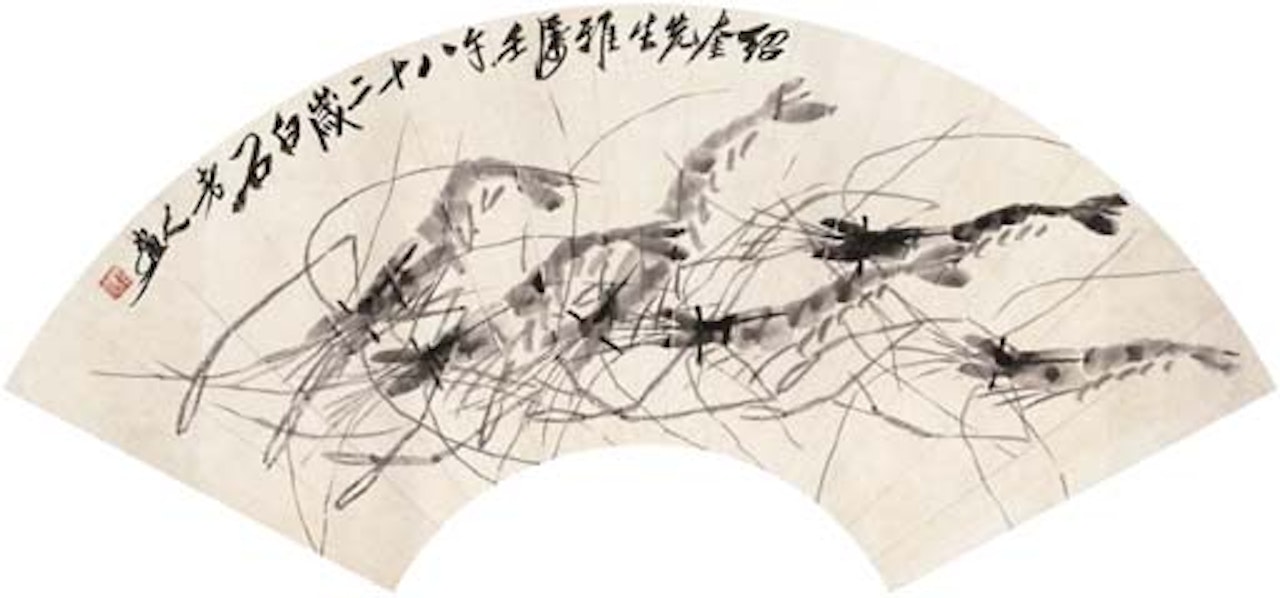 紹奎先生雅屬壬午八十二歲白石老人畫